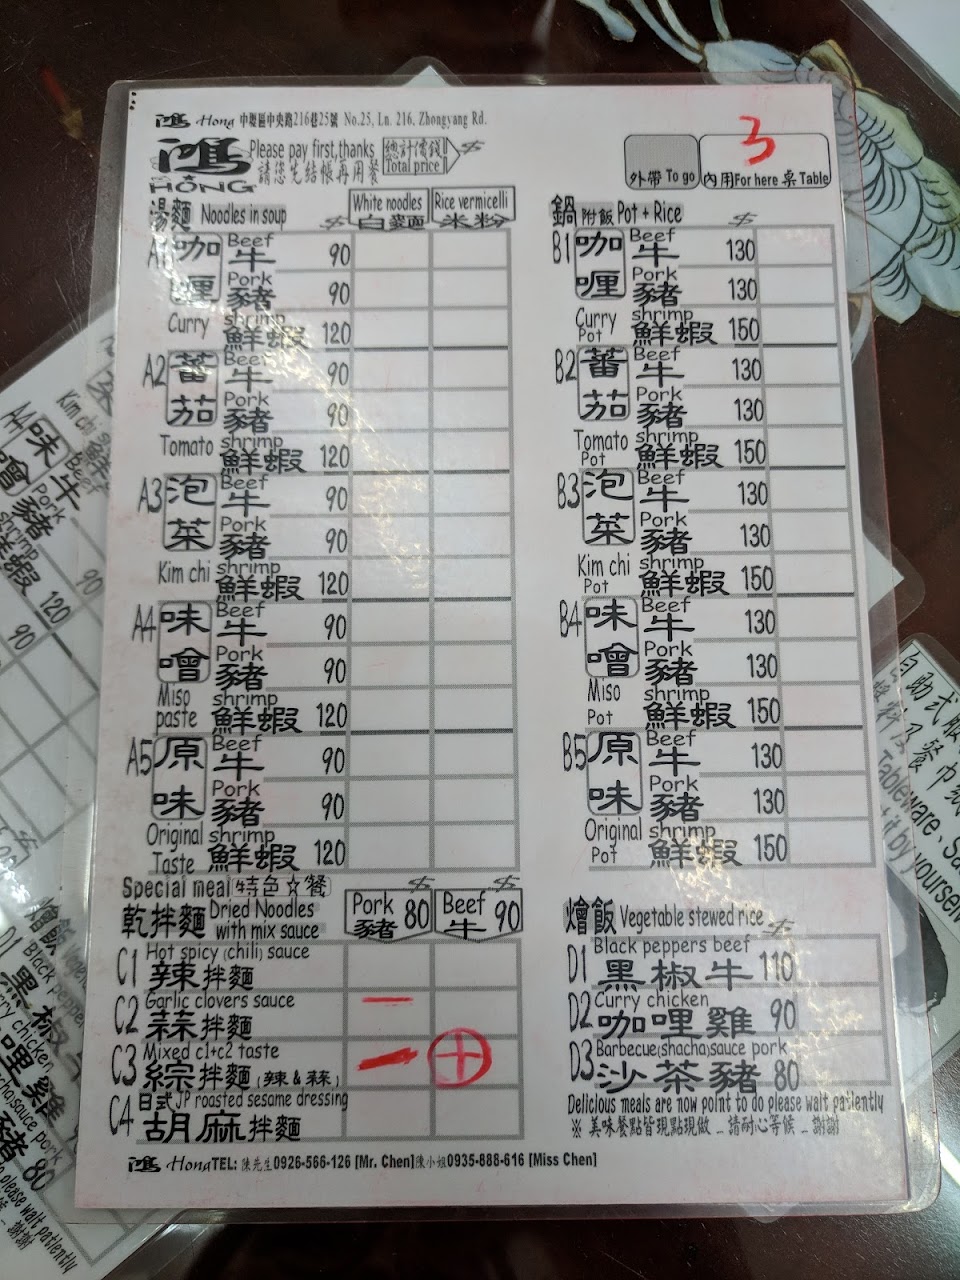 鴻 Hong 中壢區中央路216巷25號 No.25, Ln. 216, Zhongyang Rd.
鴻 HONG
Please pay first,thanks
請您先結帳再用餐
總計價錢 Total price $
外帶 To go
內用For here 桌Table
3
湯麵 Noodles in soup $ White noodles 白麵 Rice vermicelli 米粉
A1 咖喱 Curry
Beef 牛 90
Pork 豬 90
shrimp 鮮蝦 120
A2 蕃茄 Tomato
Beef 牛 90
Pork 豬 90
shrimp 鮮蝦 120
A3 泡菜 Kim chi
Beef 牛 90
Pork 豬 90
shrimp 鮮蝦 120
A4 味噌 Miso paste
Beef 牛 90
Pork 豬 90
shrimp 鮮蝦 120
A5 原味 Original Taste
Beef 牛 90
Pork 豬 90
shrimp 鮮蝦 120
Special meal 特色☆餐 $ $
乾拌麵 Dried Noodles with mix sauce Pork 豬 80 Beef 牛 90
C1 Hot spicy (chili) sauce
辣拌麵
C2 Garlic clovers sauce
蒜拌麵 一
C3 Mixed c1+c2 taste
綜拌麵 (辣 & 蒜) 一 十
C4 日式 JP roasted sesame dressing
胡麻拌麵
鍋 附飯 Pot + Rice $
B1 咖喱 Curry Pot
Beef 牛 130
Pork 豬 130
shrimp 鮮蝦 150
B2 蕃茄 Tomato Pot
Beef 牛 130
Pork 豬 130
shrimp 鮮蝦 150
B3 泡菜 Kim chi Pot
Beef 牛 130
Pork 豬 130
shrimp 鮮蝦 150
B4 味噌 Miso Pot
Beef 牛 130
Pork 豬 130
shrimp 鮮蝦 150
B5 原味 Original Pot
Beef 牛 130
Pork 豬 130
shrimp 鮮蝦 150
燴飯 Vegetable stewed rice $
D1 Black peppers beef
黑椒牛 110
D2 Curry chicken
咖哩雞 90
D3 Barbecue(shacha)sauce pork
沙茶豬 80
Delicious meals are now point to do please wait patiently
※ 美味餐點皆現點現做 _ 請耐心等候 _ 謝謝
鴻 Hong TEL: 陳先生0926-566-126 [Mr. Chen]陳小姐0935-888-616 [Miss Chen]
Kim chi
A4 味噌
Beef 牛
Pork 豬 90
shrimp 鮮蝦 120
90
燴飯
D1 Black peppe
黑椒
rry chicken
哩雞
sauce pork
豬 80
please wait patiently
謝謝
自助式
Tableware、Sa
it by yourself